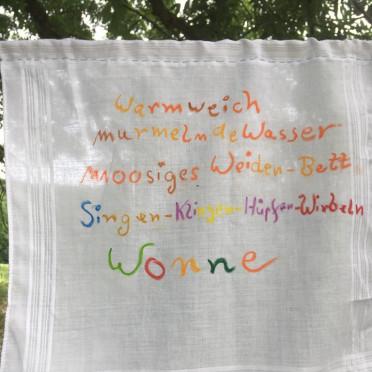 Warmweich
murmelnde Wasser
moosiges Weiden-Bett
Singen-Klingen-Hüpfen-Wirbeln
Wonne